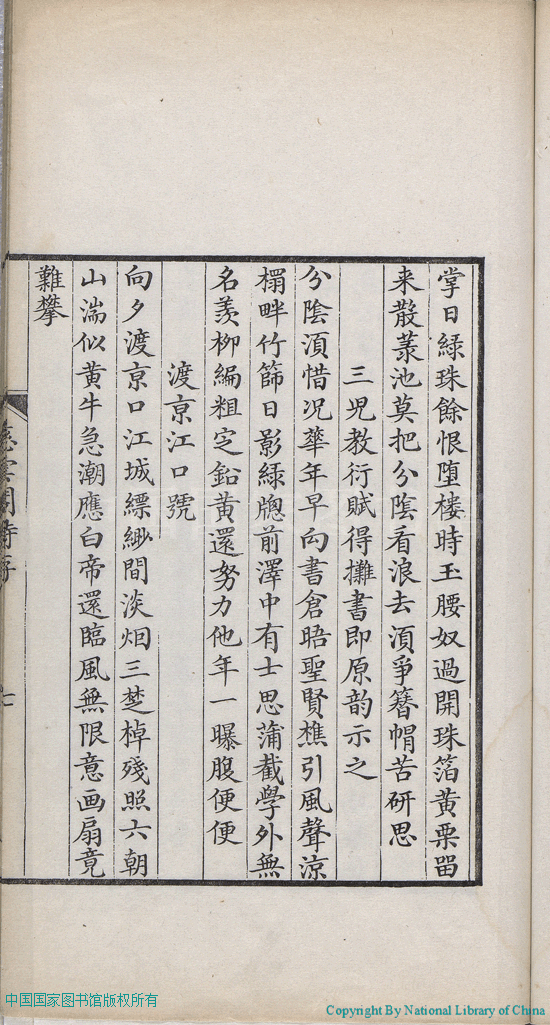 掌日綠珠餘恨堕樓時玉腰奴過開珠箔黃栗畱
来散菉池莫把分陰看浪去湏爭簪帽苦研思
三児教衍賦得攤書即原韵示之
分陰湏惜况華年早向書倉晤聖賢樵引風聲涼
榻畔竹篩日影綠牕前澤中有士思蒲截學外無
名羡柳編粗定鉛黃還努力他年一曝腹便便
渡京江口號
向夕渡京口江城縹緲間淡烟三楚棹殘照六朝
山湍似黃牛急潮應白帝還臨風無限意画扇竟
難攀
七
中国国家图书馆版权所有
Copyright By National Library of China